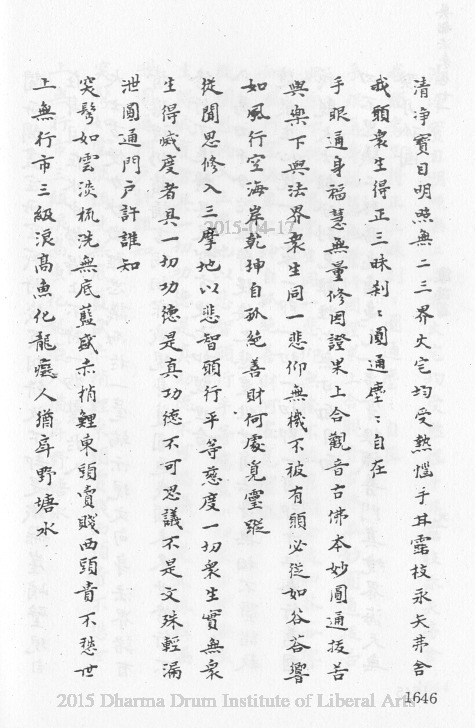 清淨寶目明照無二三界火宅均受熱惱手甘露枝永矢弗舍
我願眾生得正三昧剎剎圓通塵塵自在
手眼通身福慧無量修因證果上合觀音古佛本妙圓通拔苦
與樂下與法界眾生同一悲仰無機不被有願必從如谷答響
如風行空海岸乾坤自孤絕善財何處覓靈蹤
從聞思修入三摩地以悲智願行平等慈度一切眾生實無眾
生得滅度者具一切功德是真功德不可思議不是文殊輕漏
泄圓通門戶許誰知
突髻如雲淡梳洗無底藍盛赤梢鯉東頭賣賤西頭貴不愁世
上無行市三級浪高魚化龍癡人猶戽野塘水
2015-04-17
2015 Dharma Drum Institute of Liberal Arts
1646